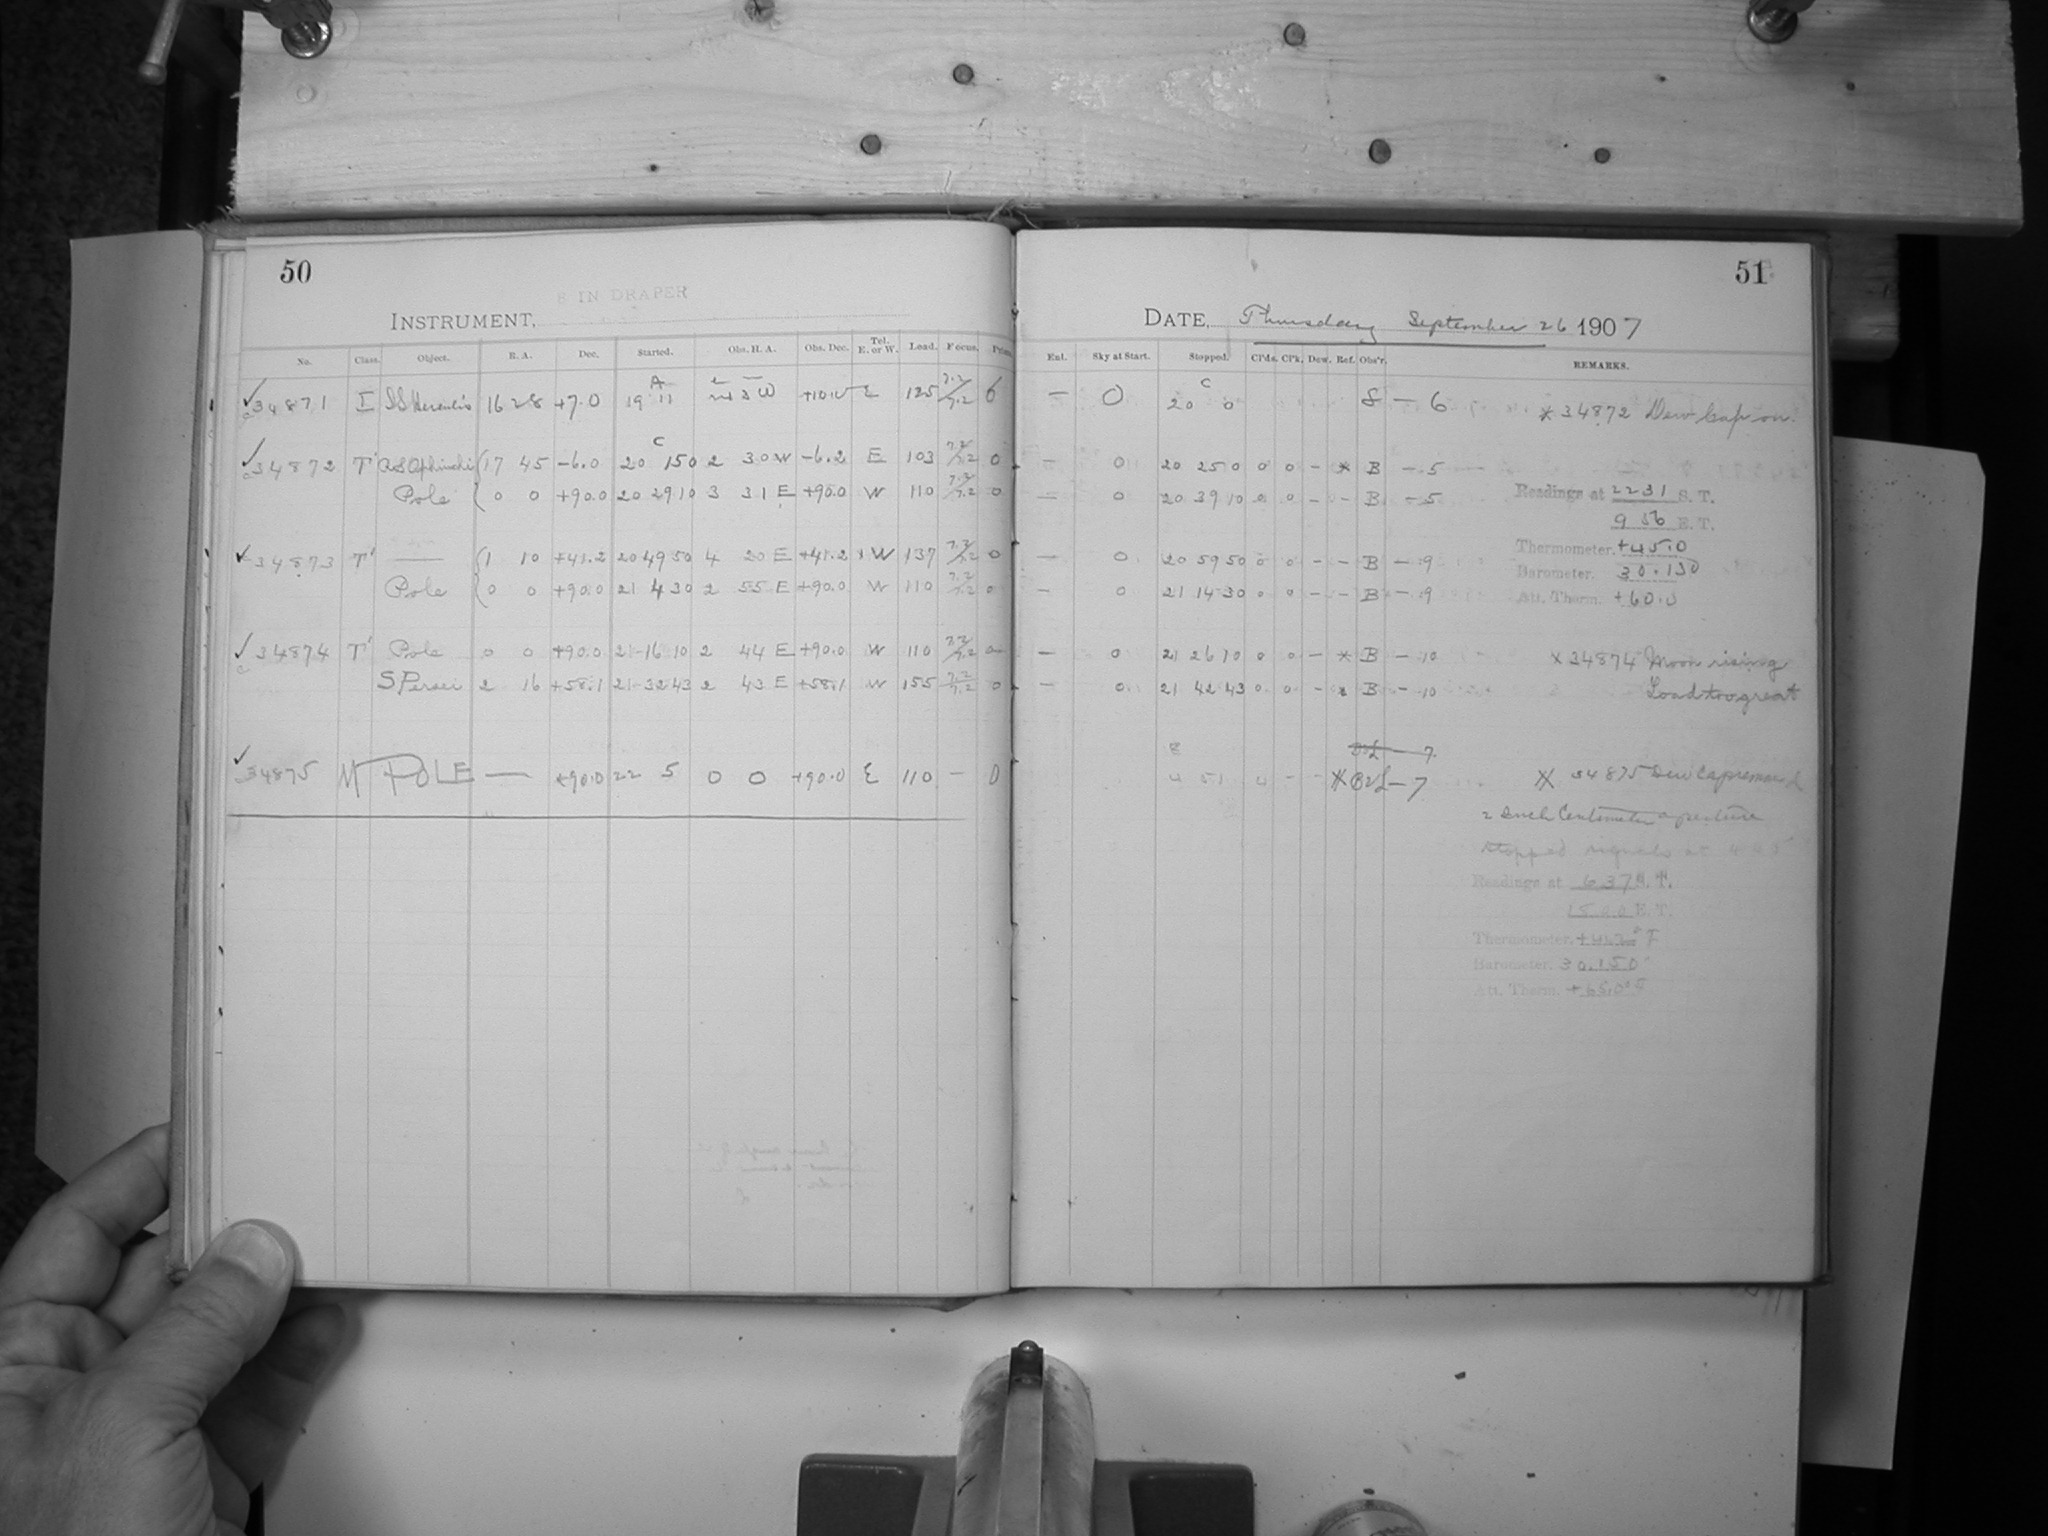 50
8 IN DRAPER
INSTRUMENT,
No. Class. Object. R. A. Dec. Started. Obs. H. A. Obs. Dec. Tel. E. or W. Load. Focus.
34871 I SS Herculis 16 28 +7.0 19 11 W +10.0 E 125 7.2/7.2 6
34872 T' Ophiuchi 17 45 -6.0 20 15 0 2 30 W -6.2 E 103 7.2/7.2 0
Pole 0 0 +90.0 20 29 10 3 31 E +90.0 W 110 7.2/7.2 0
34873 T' — 1 10 +41.2 20 49 50 4 20 E +41.2 W 137 7.2/7.2 0
Pole 0 0 +90.0 21 4 30 2 55 E +90.0 W 110 7.2/7.2 0
34874 T' Pole 0 0 +90.0 21-16 10 2 44 E +90.0 W 110 7.2/7.2 0
S Persei 2 16 +58.1 21-32 43 2 43 E +58.1 W 155 7.2/7.2 0
34875 M POLE — +90.0 22 5 0 0 +90.0 E 110 — 0
51
DATE, Thursday September 26 1907
Exl. Sky at Start. Stopped. Cl'ds. Cl'k. Dew. Ref. Obs'r. REMARKS.
— 0 20 0 S — 6 * 34872 Dew Cap on.
— 0 20 25 0 0 0 — * B — 5
— 0 20 39 10 0 0 — - B — 5 Readings at 22 31 S. T.
9 56 E. T.
Thermometer. +45.0
— 0 20 59 50 0 0 — - B — 9 Barometer. 30.130
— 0 21 14 30 0 0 — - B — 9 Att. Therm. +60.0
— 0 21 26 10 0 0 — * B — 10 * 34874 Moon rising
— 0 21 42 43 0 0 — * B — 10 Load too great
— 7
4 51 * — 7 * 34875 Dew cap removed
2 Inch Centimeter aperture
Stopped signals at
Readings at 6 37 S. T.
15.00 E. T.
Thermometer.
Barometer. 30.150
Att. Therm. +65.0